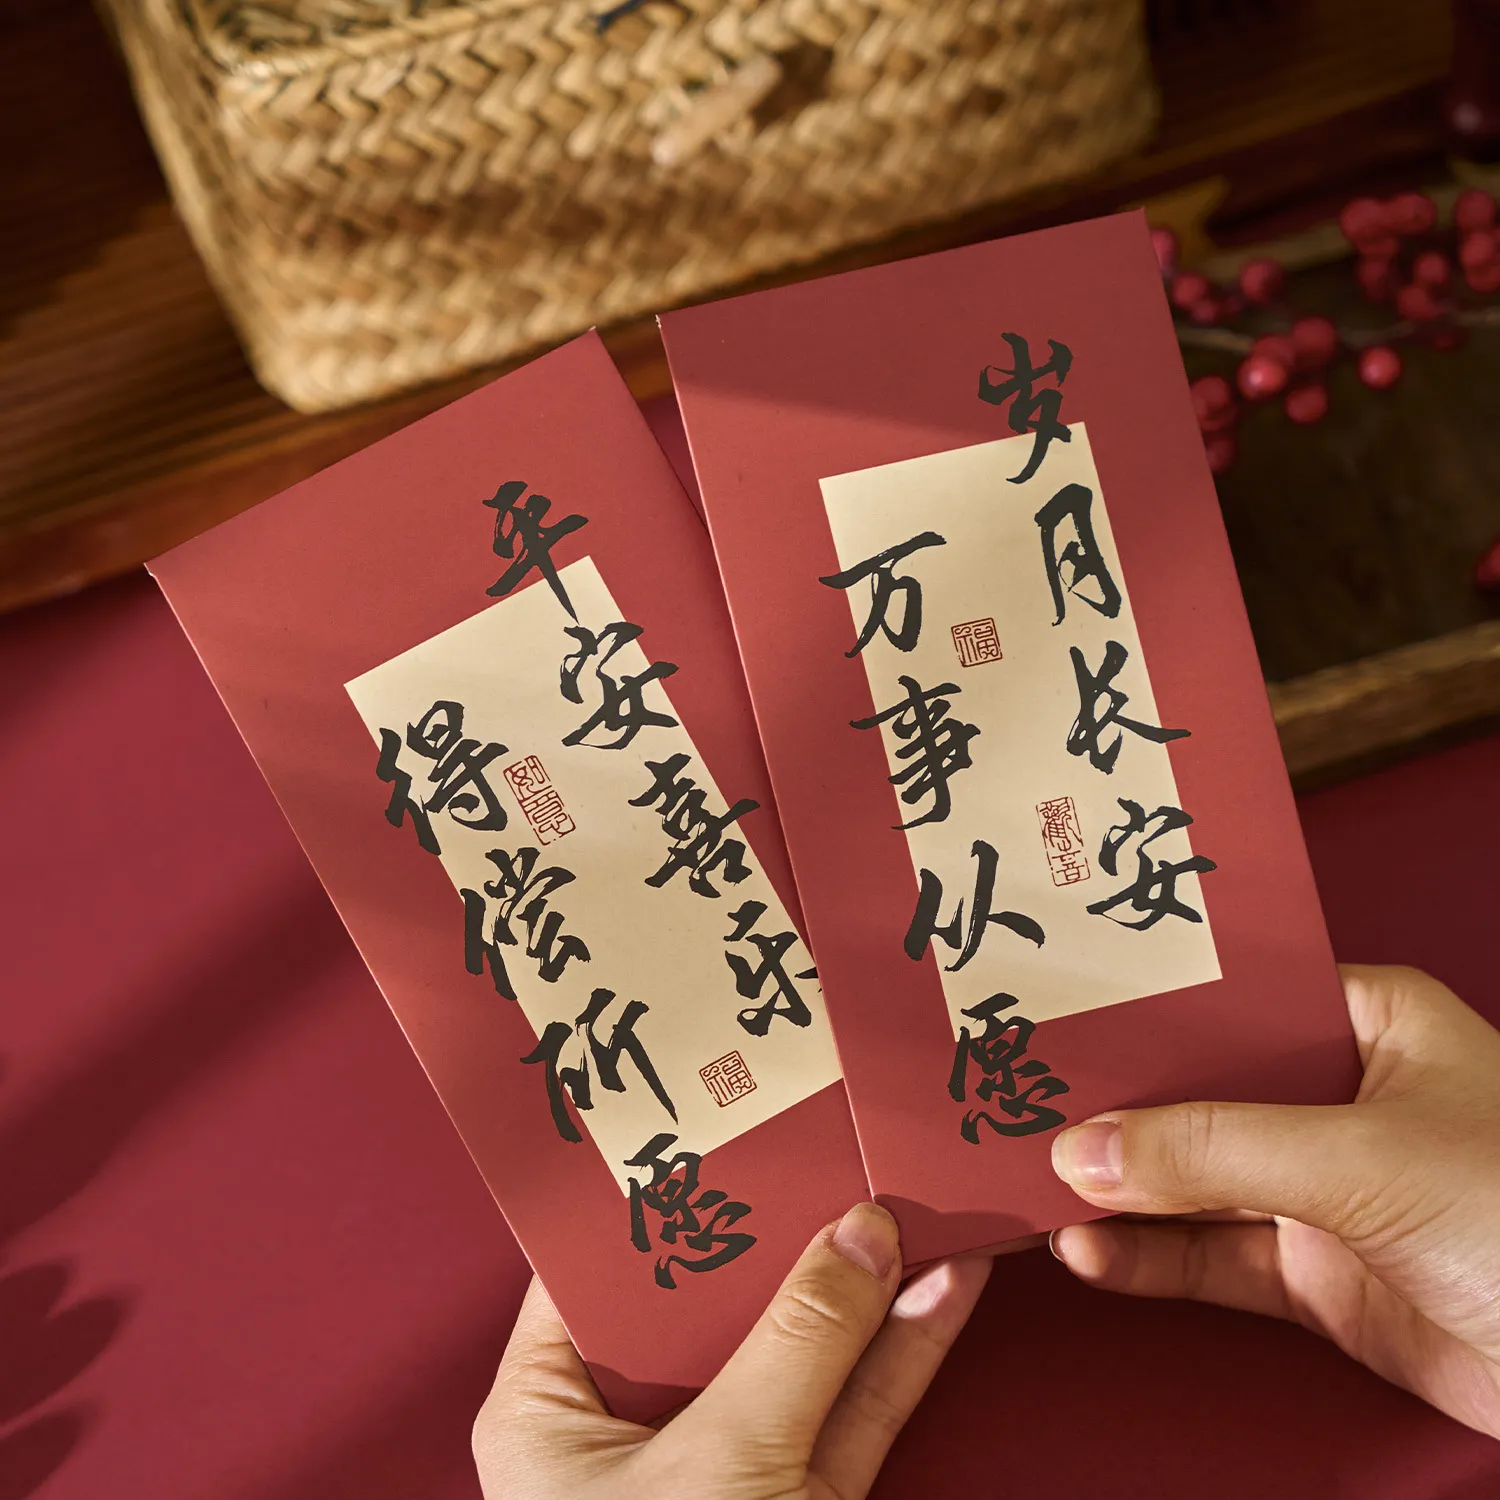 平安喜乐
得偿所愿
如意
福
岁月长安
万事从愿
福
觀音